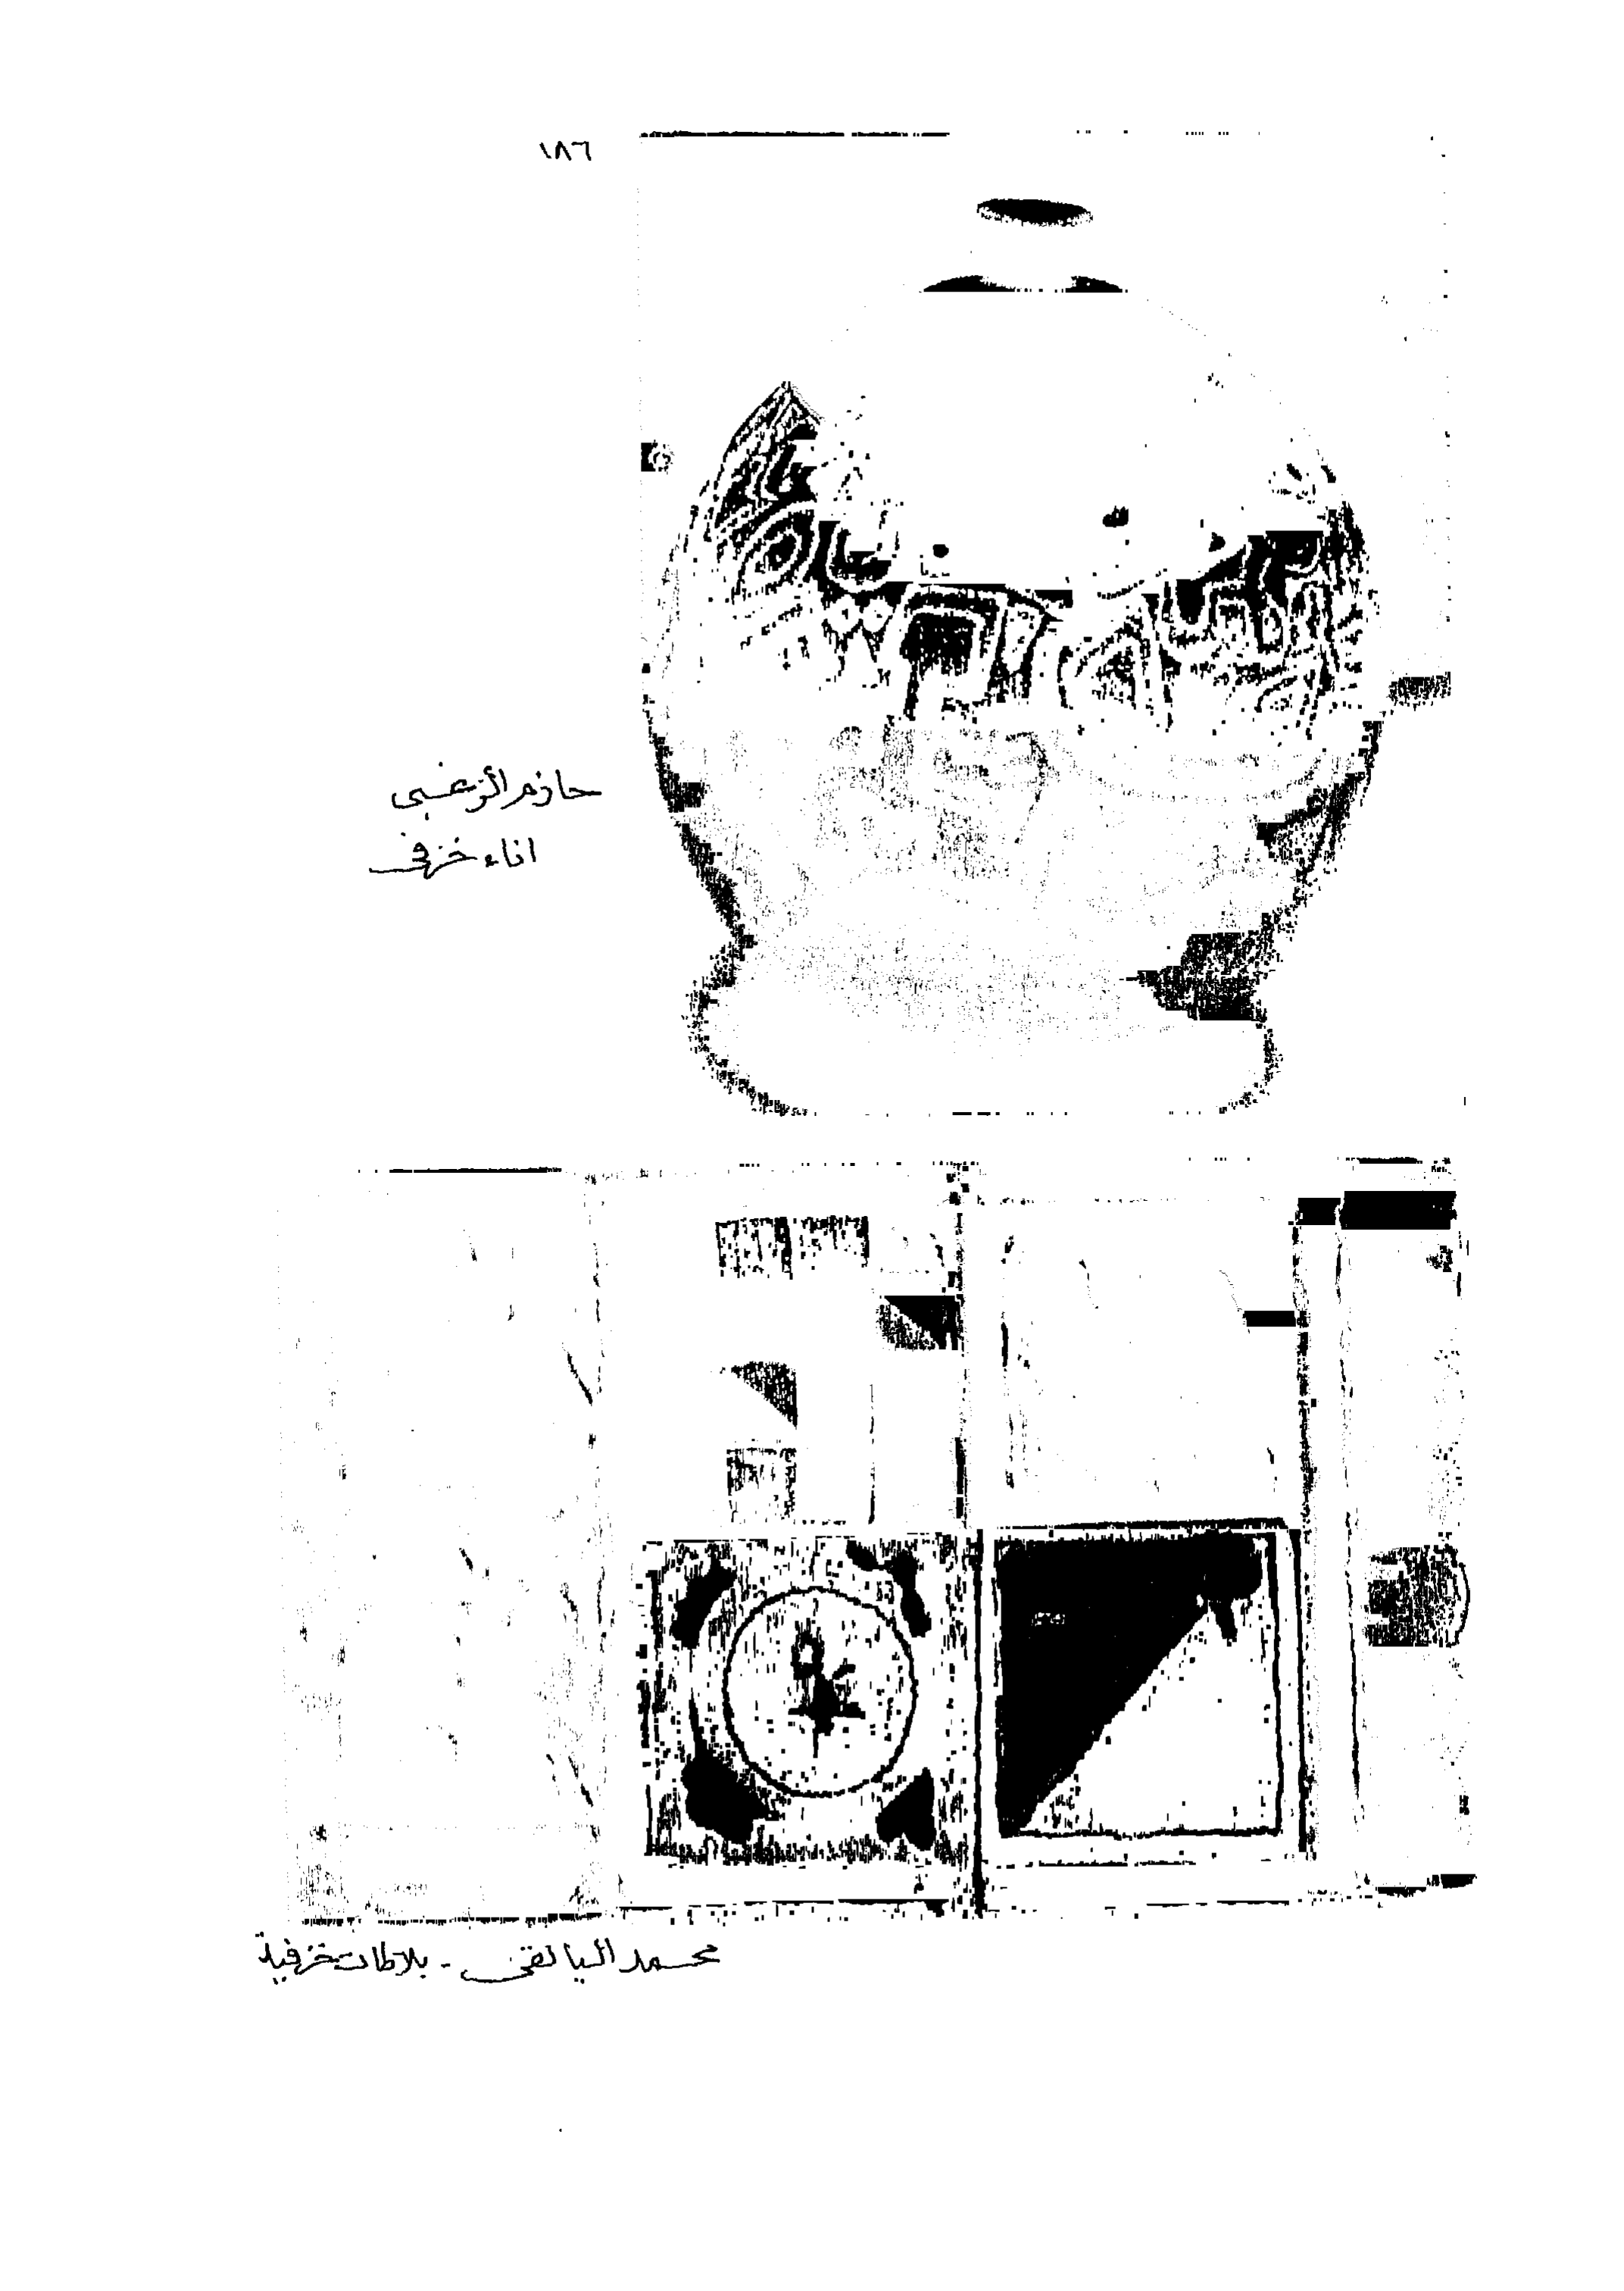 ١٨٦
حازم الزغبي
اناء خزفى
محمد اليانقى - بلاطات خزفية